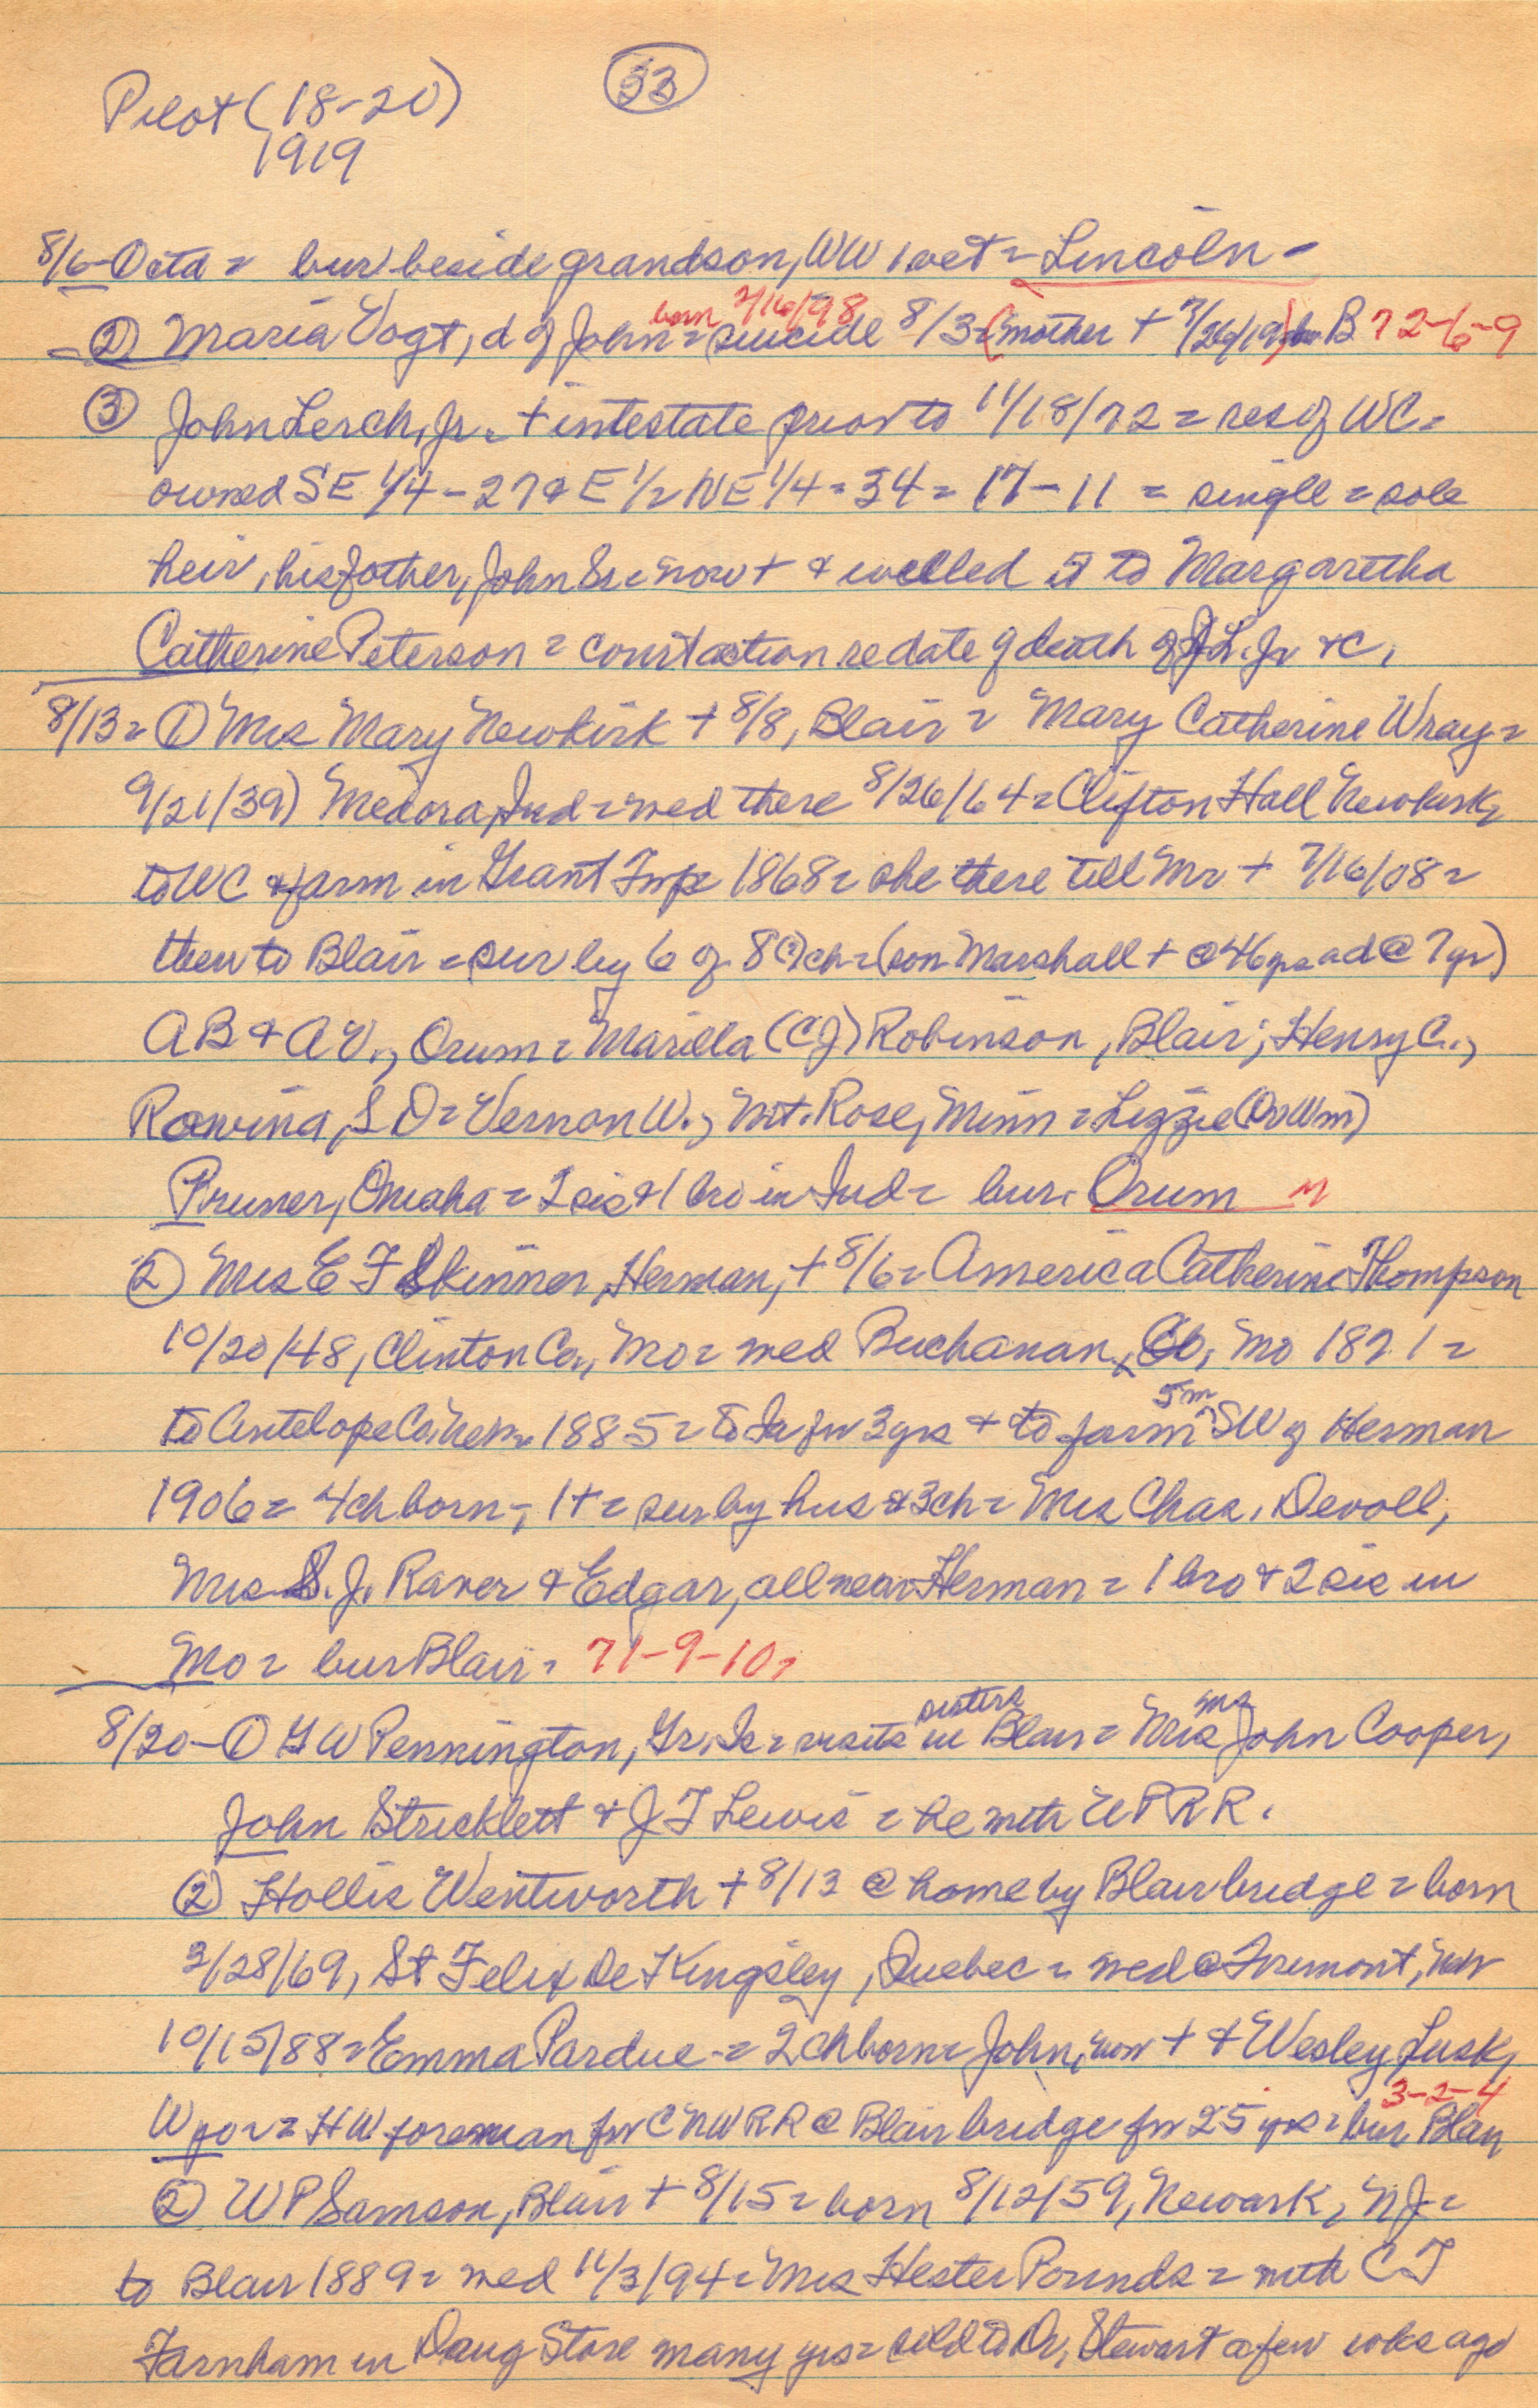 33
Pilot (18-20)
1919
8/6- Octd = bur beside grandson, WW 1 vet = Lincoln -
② Maria Vogt, d of John = suicide 8/3 = (mother + 7/26/19) B 72-6-9
born 2/16/98
③ John Lerch, Jr. = + intestate prior to 11/18/72 = res of WC =
owned SE 1/4 - 27 & E 1/2 NE 1/4 = 34 = 17-11 = single = sole
heir, his father, John Sr = now + & willed it to Margaretha
Catherine Peterson = court action re date of death of J L. Jr &C.
8/13 = ① Mrs Mary Newkirk + 8/8, Blair = Mary Catherine Wray =
9/21/39) Medora, Ind = med there 8/26/64 = Clifton Hall Newkirk,
to WC & farm in Grant Twp 1868 = she there till Mr + 7/16/08 =
then to Blair = sur by 6 of 8 (?) ch = (son Marshall + @ 46 yrs a d @ 7 yr)
AB & A V., Orum = Marilla (CJ) Robinson, Blair; Henry C.,
Rowina, S D = Vernon W., Mt. Rose, Minn = Lizzie (Dr Wm)
Pruner, Omaha = 2 sis & 1 bro in Ind = bur. Orum
② Mrs E F Skinner, Herman, + 8/6 = America Catherine Thompson
10/20/48, Clinton Co., Mo = med Buchanan, Co, Mo 1871 =
to Antelope Co. Neb. 1885 = to Ia for 3 yrs + to farm 5m SW of Herman
1906 = 4 ch born -, 1 + = sur by hus & 3 ch = Mrs Chas. Devoll,
Mrs S. J. Raver & Edgar, all near Herman = 1 bro & 2 sis in
Mo = bur Blair = 71-9-10 =
8/20 - ① G W Pennington, Gr. Is = visits sisters in Blair = Mrs John Cooper,
John Stricklett & J F Lewis = he with UPRR.
② Hollis Wentworth + 8/13 @ home by Blair bridge = born
3/28/69, St Felix De Kingsley, Quebec = med @ Fremont, Neb
10/15/88 = Emma Pardue - = 2 ch born = John, now + & Wesley Lusk,
Wyo = = HW foreman for CNWRR @ Blair bridge for 25 yrs = bur Blair
3-2-4
② W P Samson, Blair + 8/15 = born 8/12/59, Newark, NJ =
to Blair 1889 = med 11/3/94 = Mrs Hester Pounds = with C F
Farnham in Drug Store many yrs = sold to Dr. Stewart a few wks ago